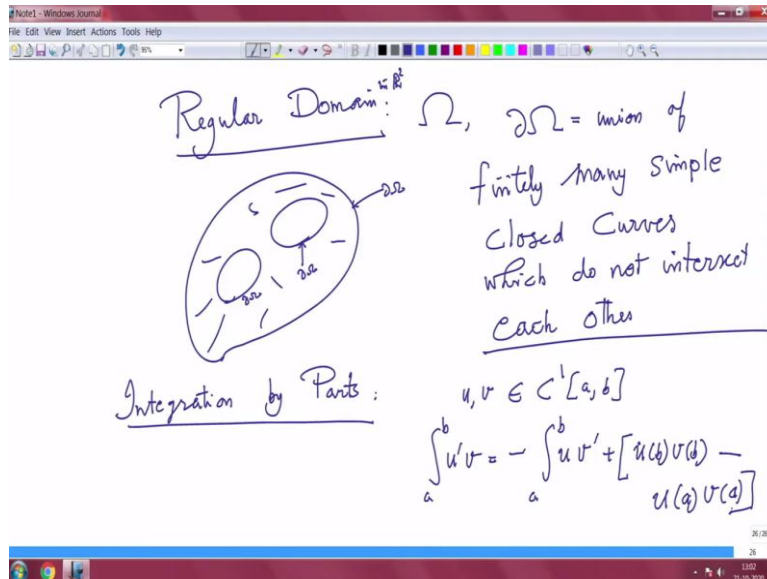 Note1 - Windows Journal
File Edit View Insert Actions Tools Help
95%
Regular Domain in ℝ² : Ω, ∂Ω = union of
finitely many simple
closed curves
which do not intersect
each other
∂Ω
∂Ω
∂Ω
Integration by Parts :
u, v ∈ C¹[a, b]
∫ₐᵇ u'v = - ∫ₐᵇ u v' + [u(b)v(b) -
u(a)v(a)]
26/26
26
13:02
21-10-2020